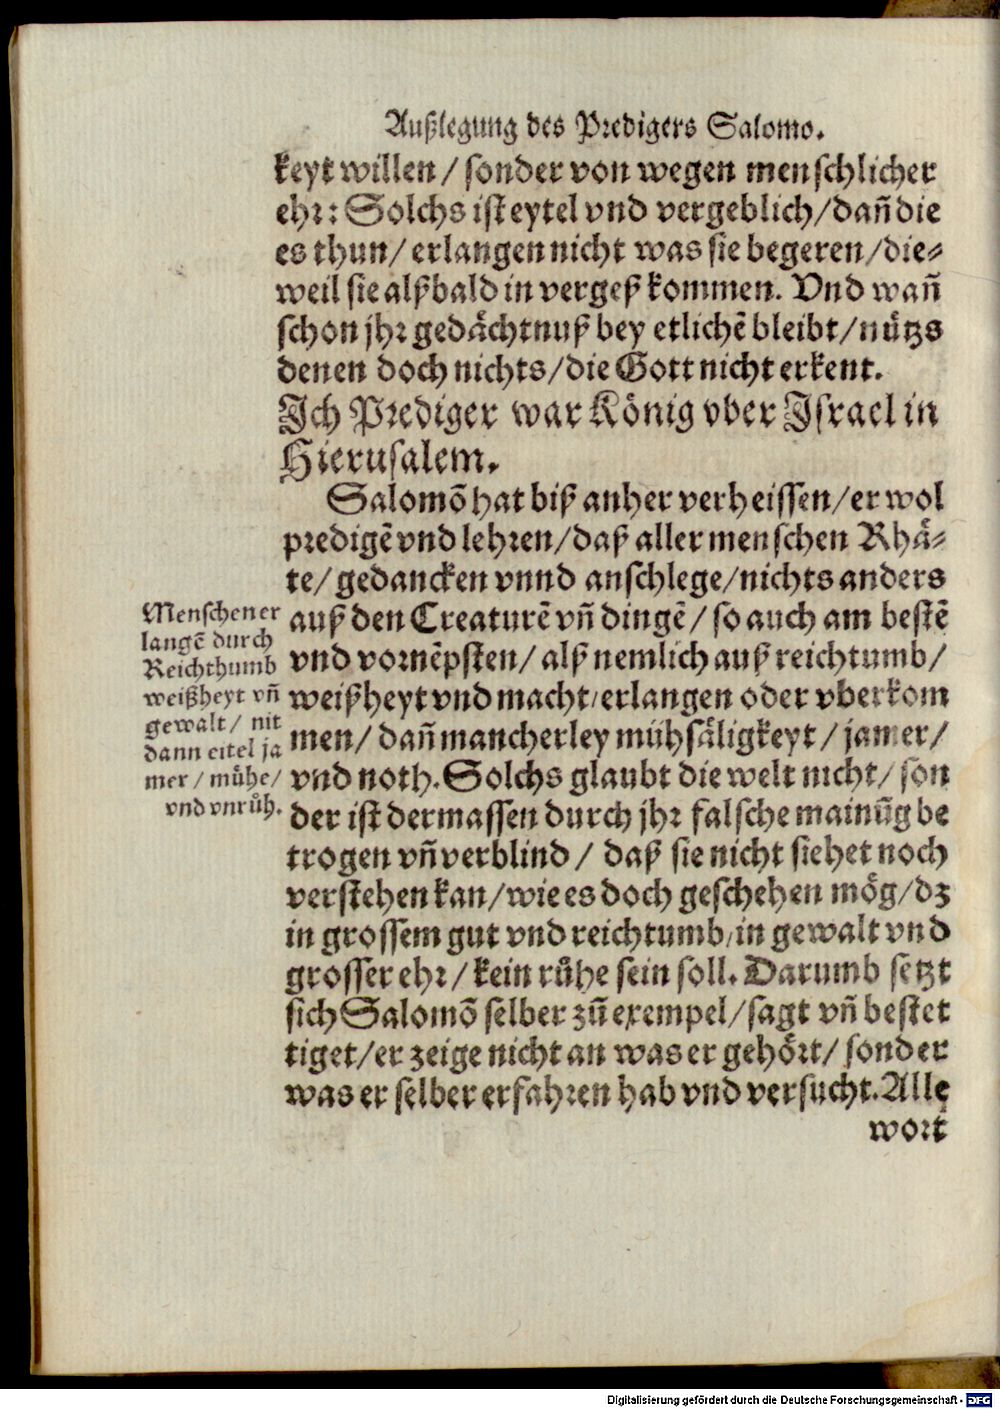 Außlegung des Predigers Salomo.
keyt willen / sonder von wegen menschlicher
ehr: Solchs ist eytel vnd vergeblich/dañ die
es thun/ erlangen nicht was sie begeren/die-
weil sie alßbald in vergeß kommen. Vnd wañ
schon jhr gedächtnuß bey etlichẽ bleibt/nützs
denen doch nichts/die Gott nicht erkent.
Ich Prediger war König vber Israel in
Hierusalem.
Salomõ hat biß anher verheissen/er wol
predigẽ vnd lehren/daß aller menschen Rhä-
te/ gedancken vnnd anschlege/nichts anders
auß den Creaturẽ vñ dingẽ / so auch am bestẽ
vnd vornẽpsten/ alß nemlich auß reichtumb/
weißheyt vnd macht/erlangen oder vberkom
men/ dañ mancherley mühsäligkeyt / jamer/
vnd noth. Solchs glaubt die welt nicht/ son
der ist dermassen durch jhr falsche mainũg be
trogen vñ verblind / daß sie nicht siehet noch
verstehen kan/wie es doch geschehen mög/dz
in grossem gut vnd reichtumb/in gewalt vnd
grosser ehr / kein růhe sein soll. Darumb setzt
sich Salomõ selber zũ exempel/sagt vñ bestet
tiget/er zeige nicht an was er gehört/ sonder
was er selber erfahren hab vnd versucht. Alle
wort
Menschen er
langẽ durch
Reichthumb
weißheyt vñ
gewalt/ nit
dann eitel ja
mer / můhe/
vnd vnrůh.
Digitalisierung gefördert durch die Deutsche Forschungsgemeinschaft - DFG